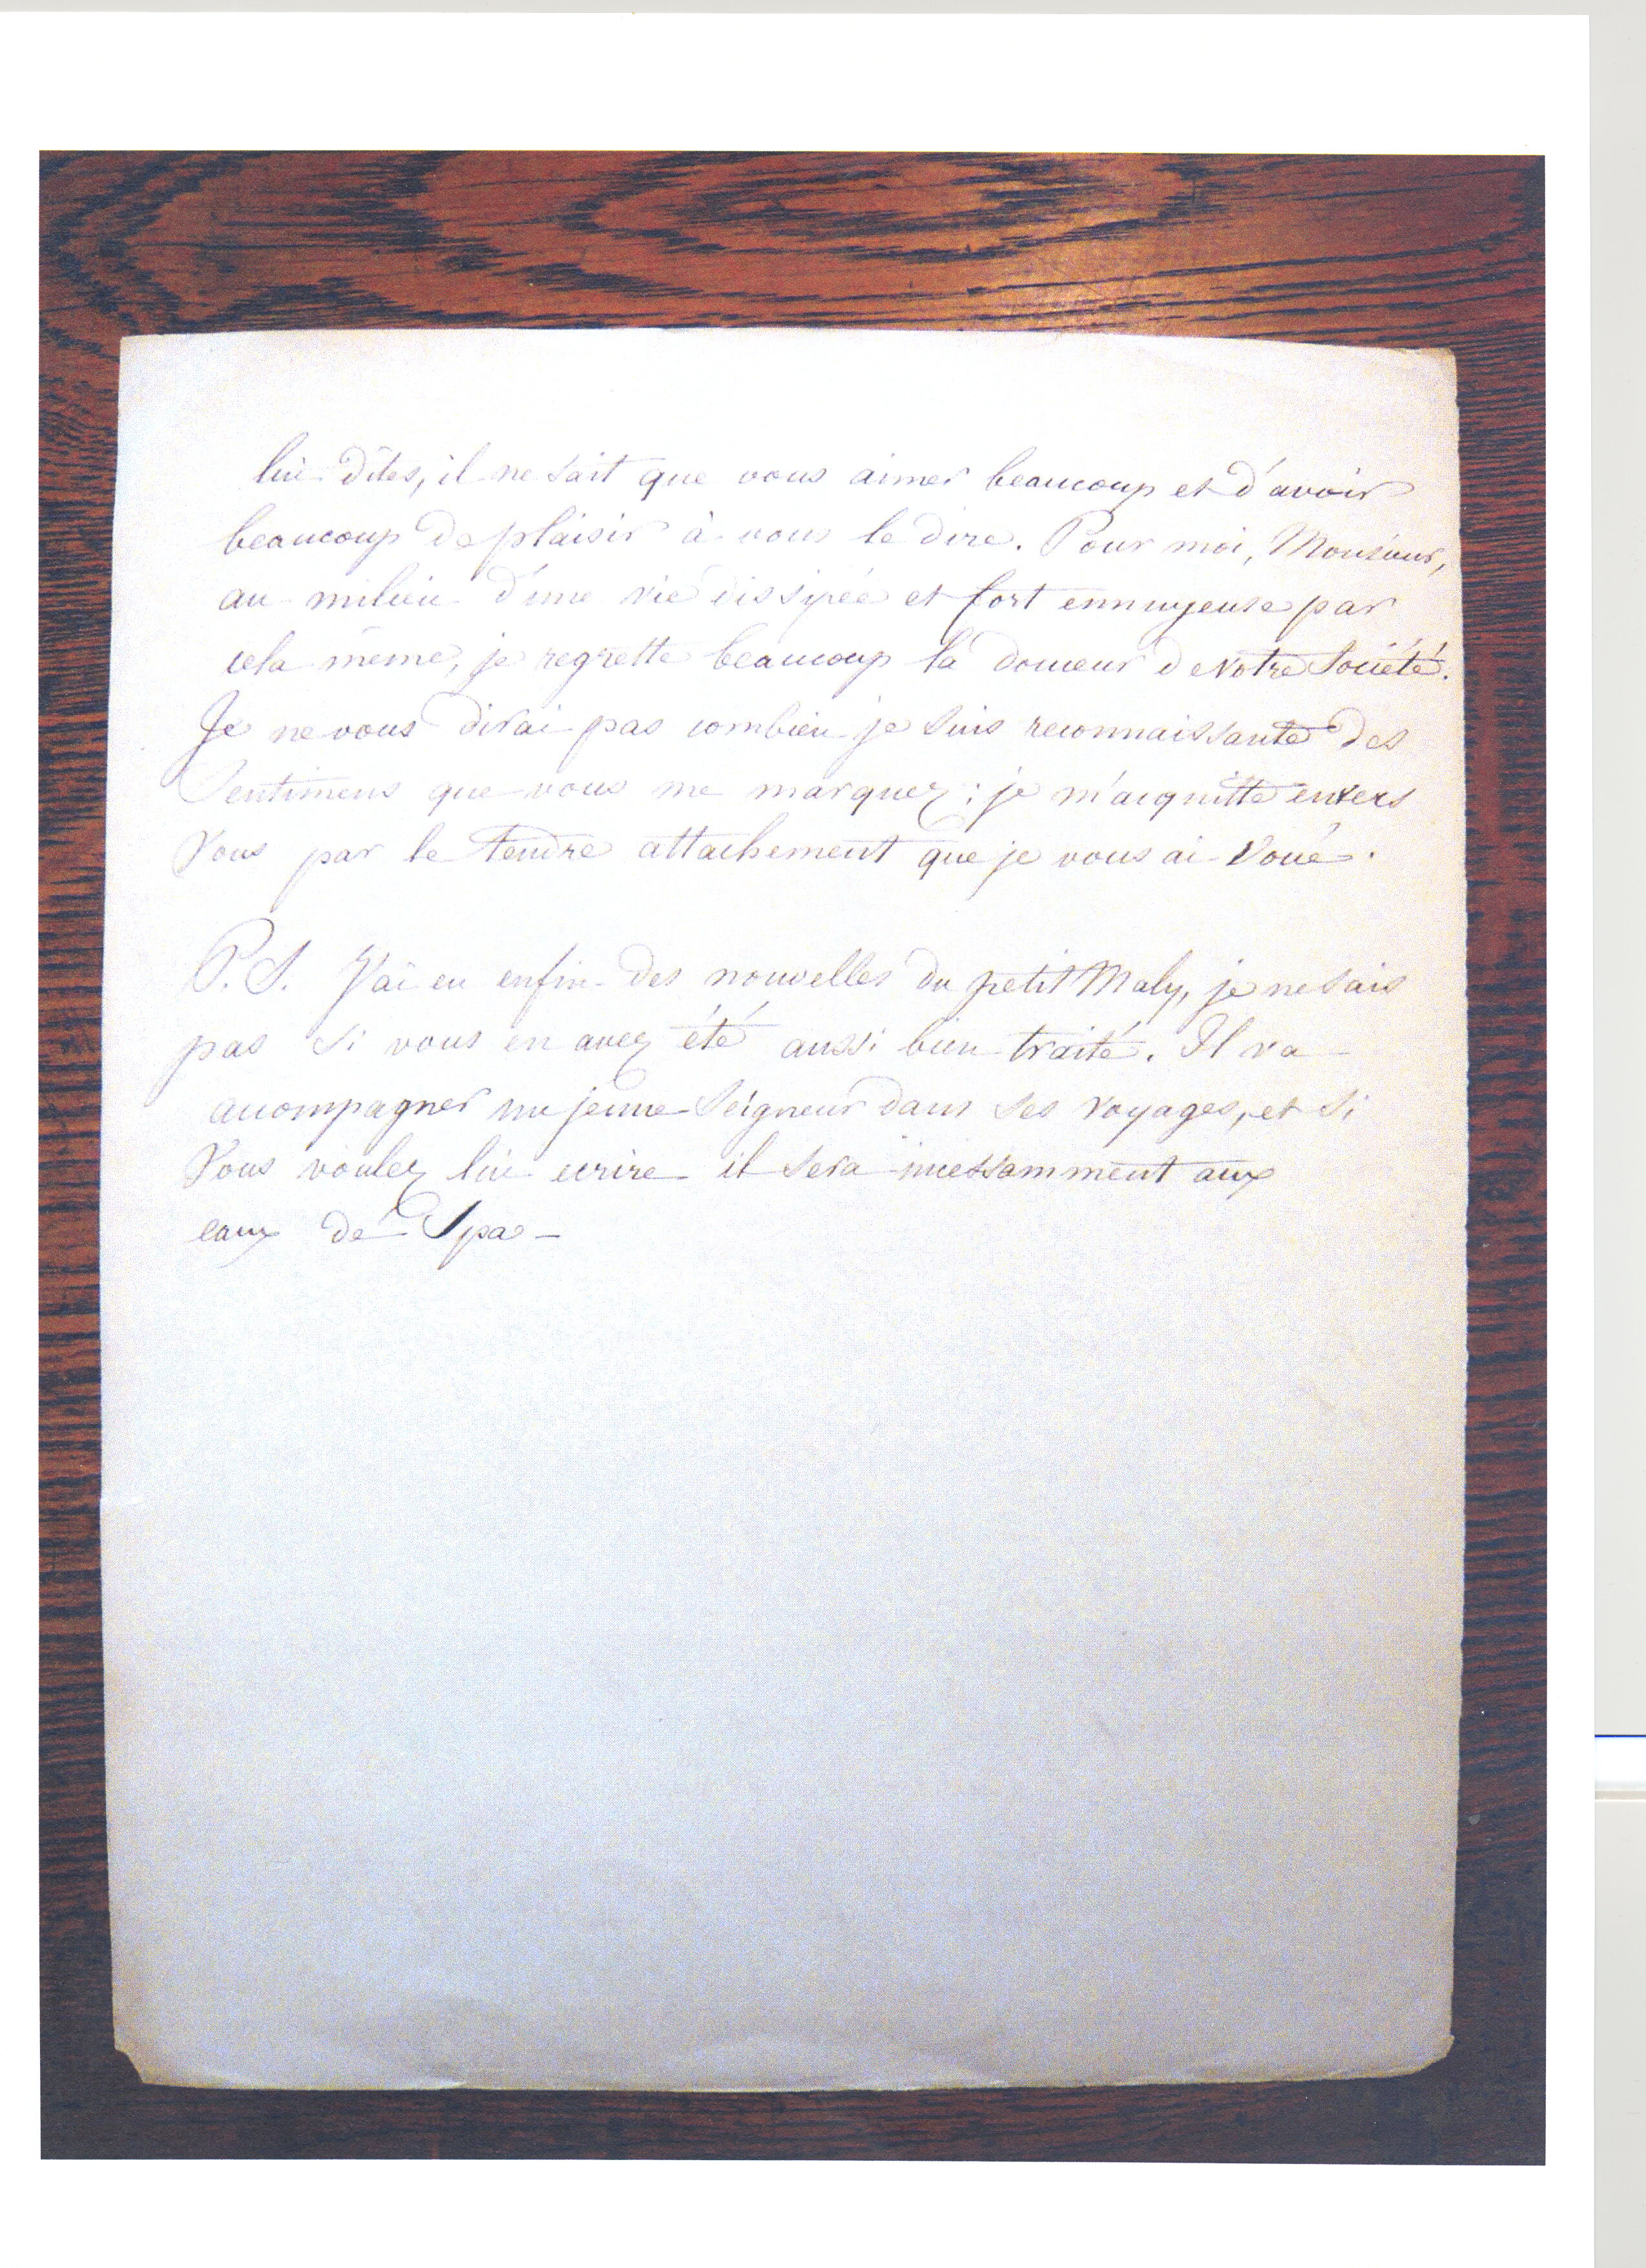 lui dites, il ne sait que vous aimer beaucoup et d'avoir
beaucoup de plaisir à vous le dire. Pour moi, Monsieur,
au milieu d'une vie dissipée et fort ennuyeuse par
cela même, je regrette beaucoup la douceur de votre Société.
Je ne vous dirai pas combien je suis reconnaissante des
Sentimens que vous me marquez : je m'acquitte envers
Vous par le tendre attachement que je vous ai Voué.
P. S. J'ai eu enfin des nouvelles du petit Maly, je ne sais
pas si vous en avez été aussi bien traité. Il va
accompagner un jeune Seigneur dans ses voyages, et si
Vous voulez lui ecrire il sera incessamment aux
eaux de Spa -